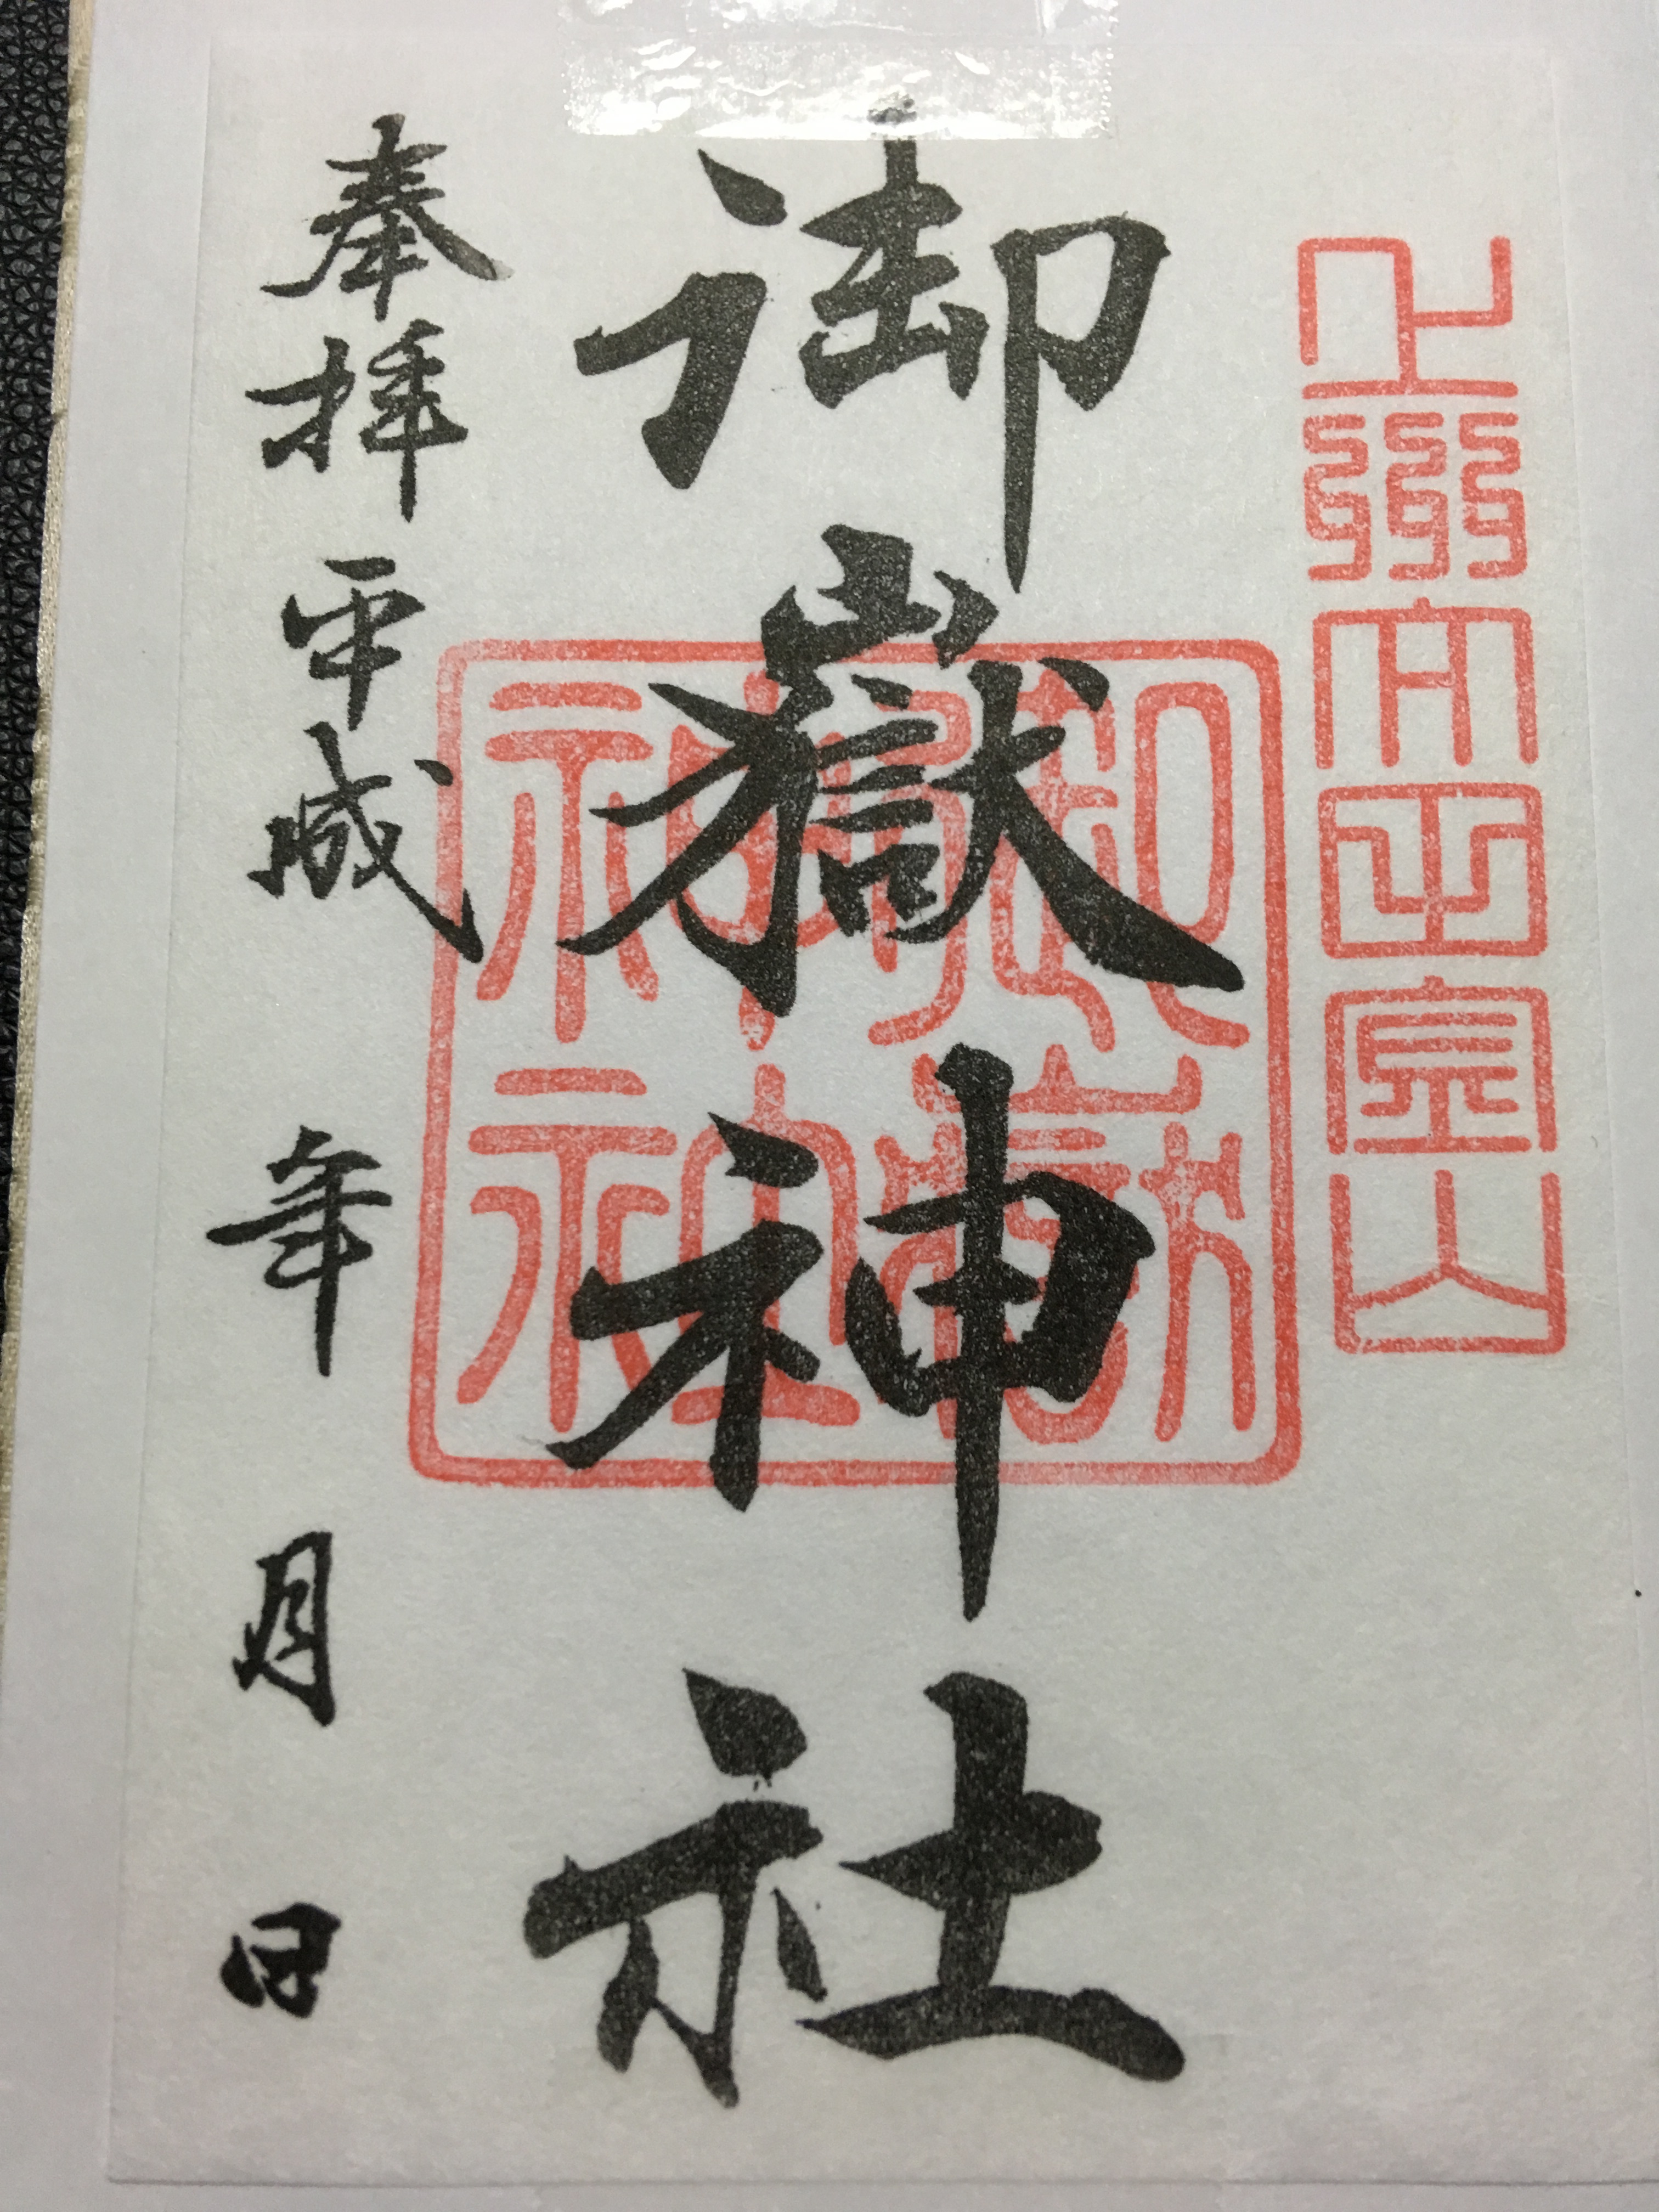 上州太田金山
御嶽神社
御嶽
神社
奉拝 平成 年 月 日